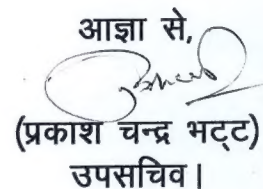 आज्ञा से,
(प्रकाश चन्द्र भट्ट)
उपसचिव।